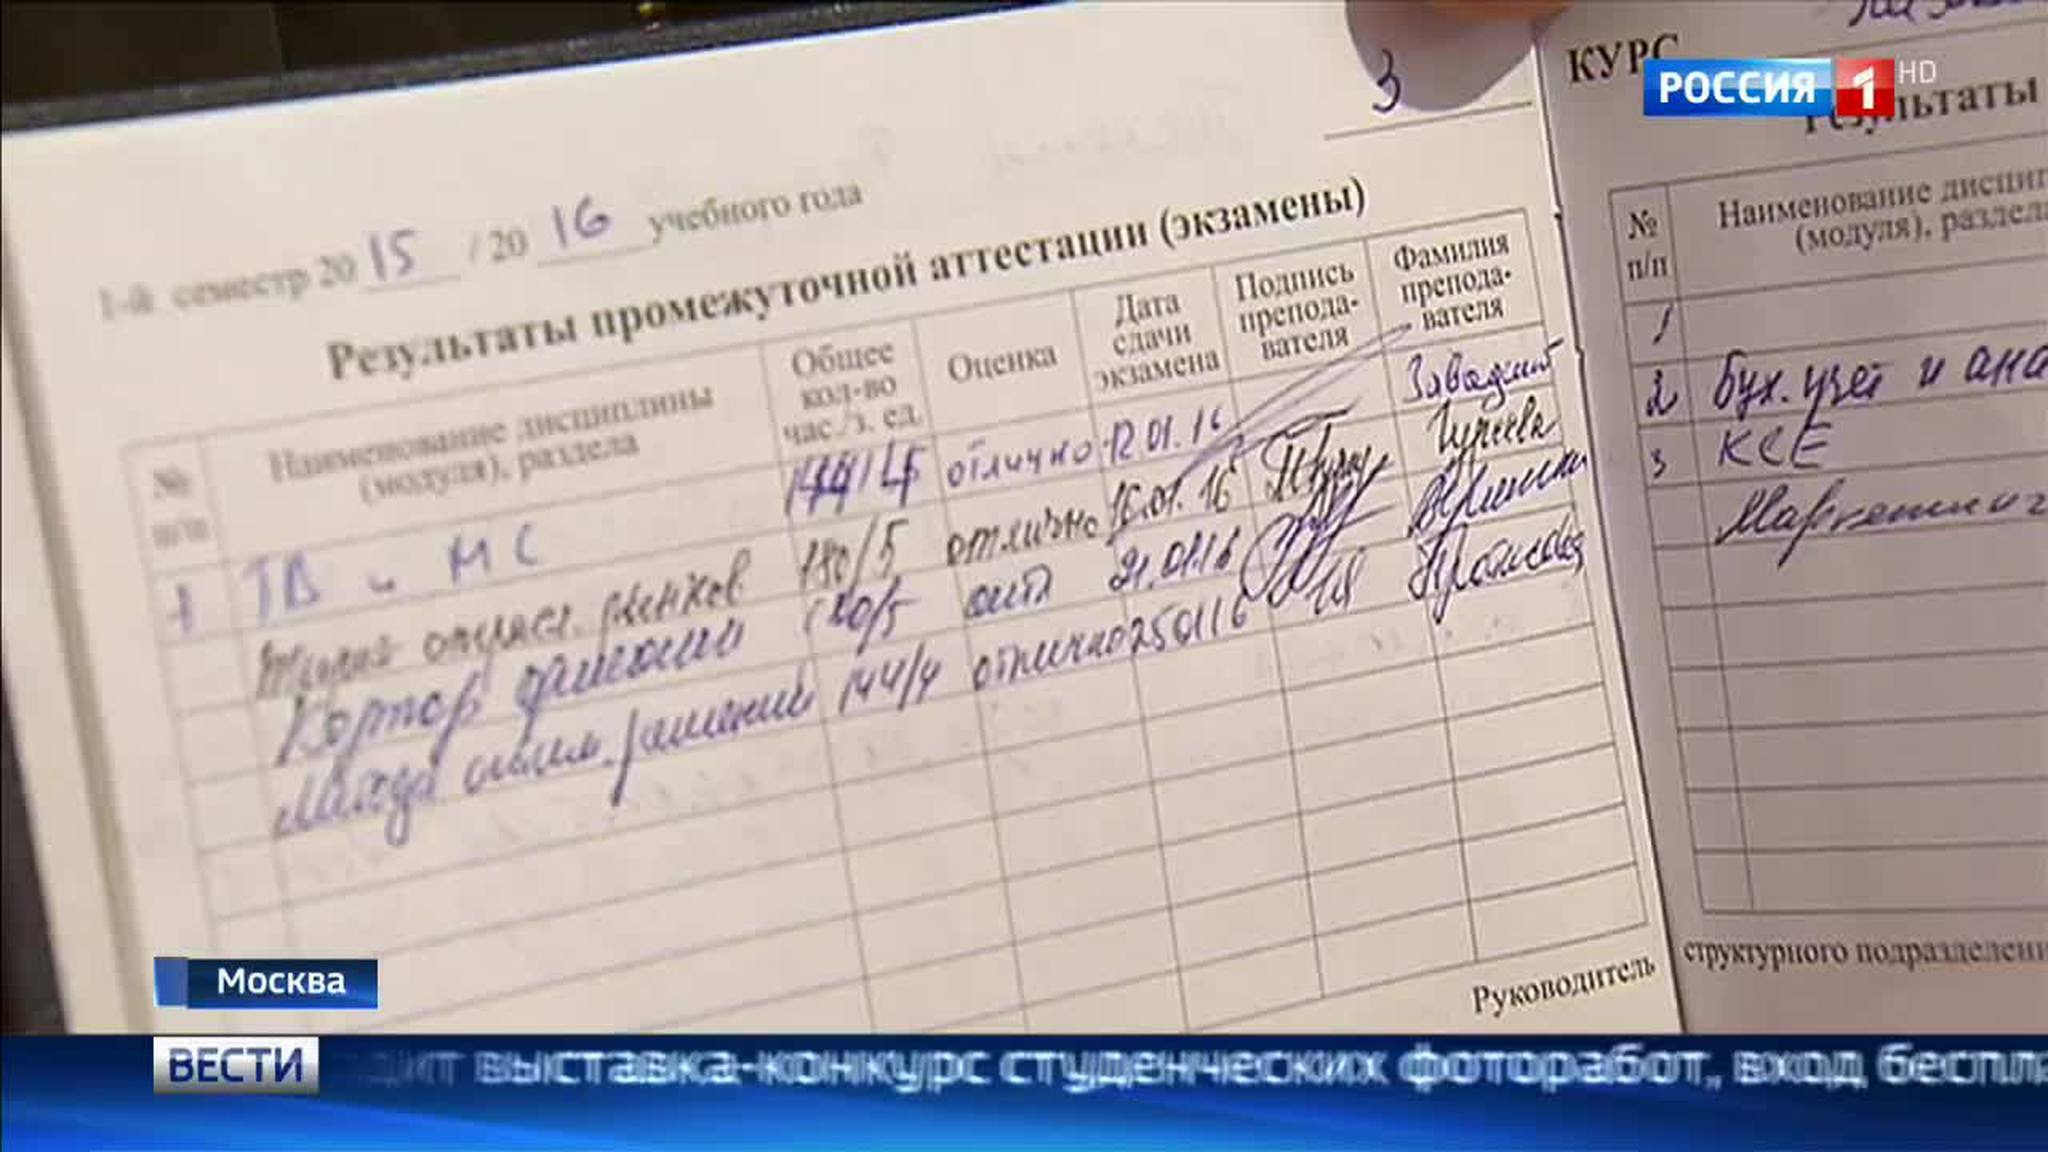 3
КУРС
РОССИЯ 1 HD
1-й семестр 20 15 / 20 16 учебного года
Результаты промежуточной аттестации (экзамены)
№ п/п
Наименование дисциплины
(модуля), раздела
Общее
кол-во
час./з. ед.
Оценка
Дата
сдачи
экзамена
Подпись
препода-
вателя
Фамилия
препода-
вателя
1 ТВ и МС 144/4 отлично 12.01.16
отрасл. рынков 180/5 отлично 16.01.16 Гуреева
Корпор финансы 180/5 отл 21.01.16
решений 144/4 отлично 250116
Руководитель
Результаты
№
п/п
Наименование дисцип
(модуля), раздела
1
2 Бух. учет и ана
3 КСЕ
Маркетинг
структурного подразделени
Москва
ВЕСТИ
дит выставка-конкурс студенческих фоторабот, вход беспла